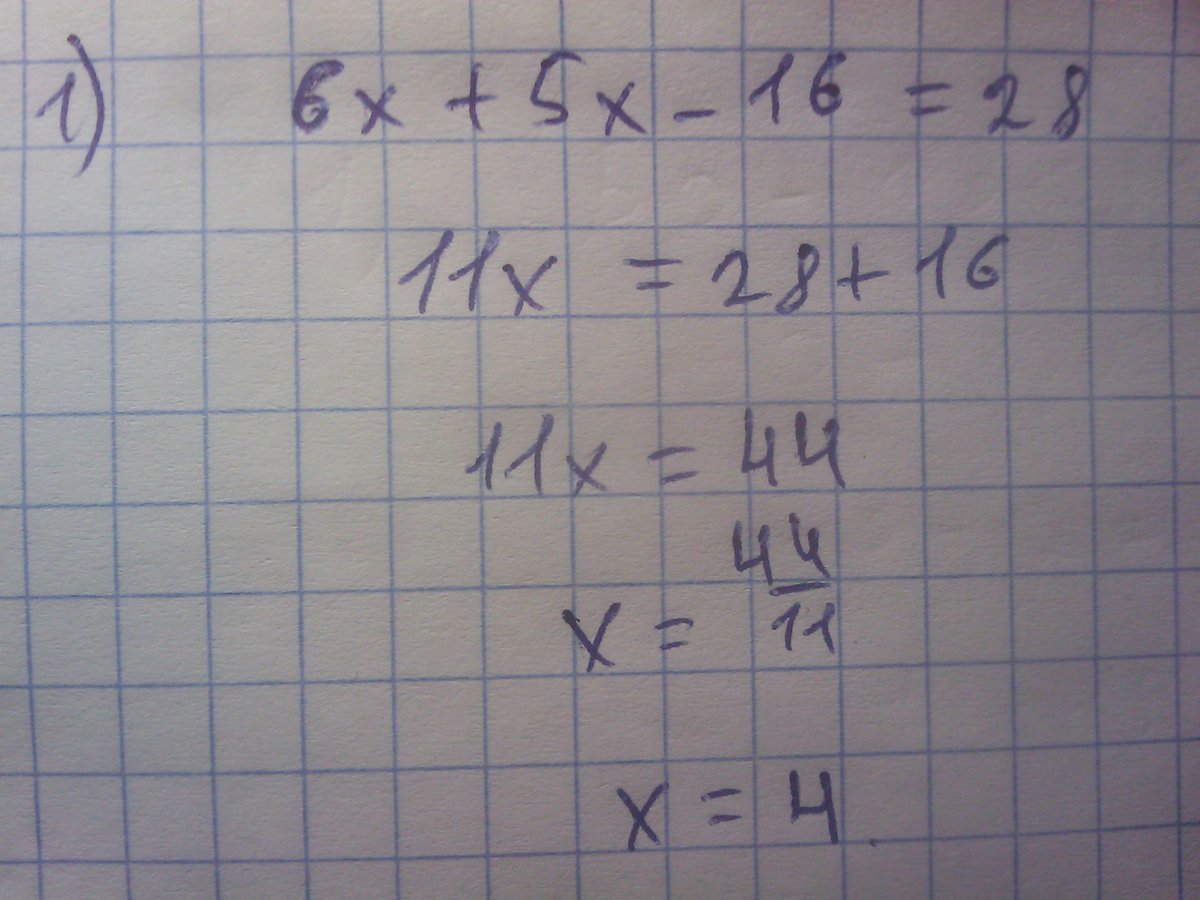 1) 6x + 5x - 16 = 28
11x = 28 + 16
11x = 44
x = 44/11
x = 4.